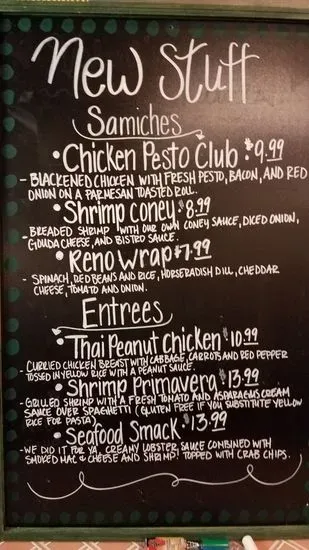 New Stuff
Samiches
• Chicken Pesto Club • $9.99
- BLACKENED CHICKEN WITH FRESH PESTO, BACON, AND RED
ONION ON A PARMESAN TOASTED ROLL.
• Shrimp Coney • 8.99
- BREADED SHRIMP WITH OUR OWN CONEY SAUCE, DICED ONION,
GOUDA CHEESE, AND BISTRO SAUCE.
• Reno Wrap $7.99
- SPINACH, DED BEANS AND RICE, HORSERADISH DILL, CHEDDAR
CHEESE, TOMATO AND ONION.
Entrees
• Thai Peanut Chicken $10.99
- CURRIED CHICKEN BREAST WITH CABBAGE, CARROTS AND RED PEPPER
TOSSED IN YELLOW RICE WITH A PEANUT SAUCE.
• Shrimp Primavera $13.99
- GRILLED SHRIMP WITH A FRESH TOMATO AND ASPARAGUS CREAM
SAUCE OVER SPAGHETTI (GLUTEN FREE IF YOU SUBSTITUTE YELLOW
RICE FOR PASTA)
• Seafood Smack • $13.99
- WE DID IT FOR YA, CREAMY LOBSTER SAUCE COMBINED WITH
SMOKED MAC & CHEESE AND SHRIMP! TOPPED WITH CRAB CHIPS.